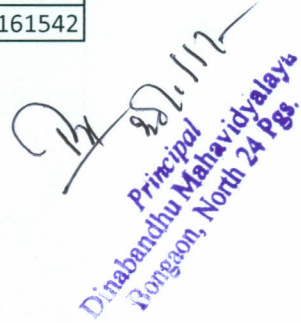 161542
Principal
Dinabandhu Mahavidyalaya
Bongaon, North 24 Pgs.